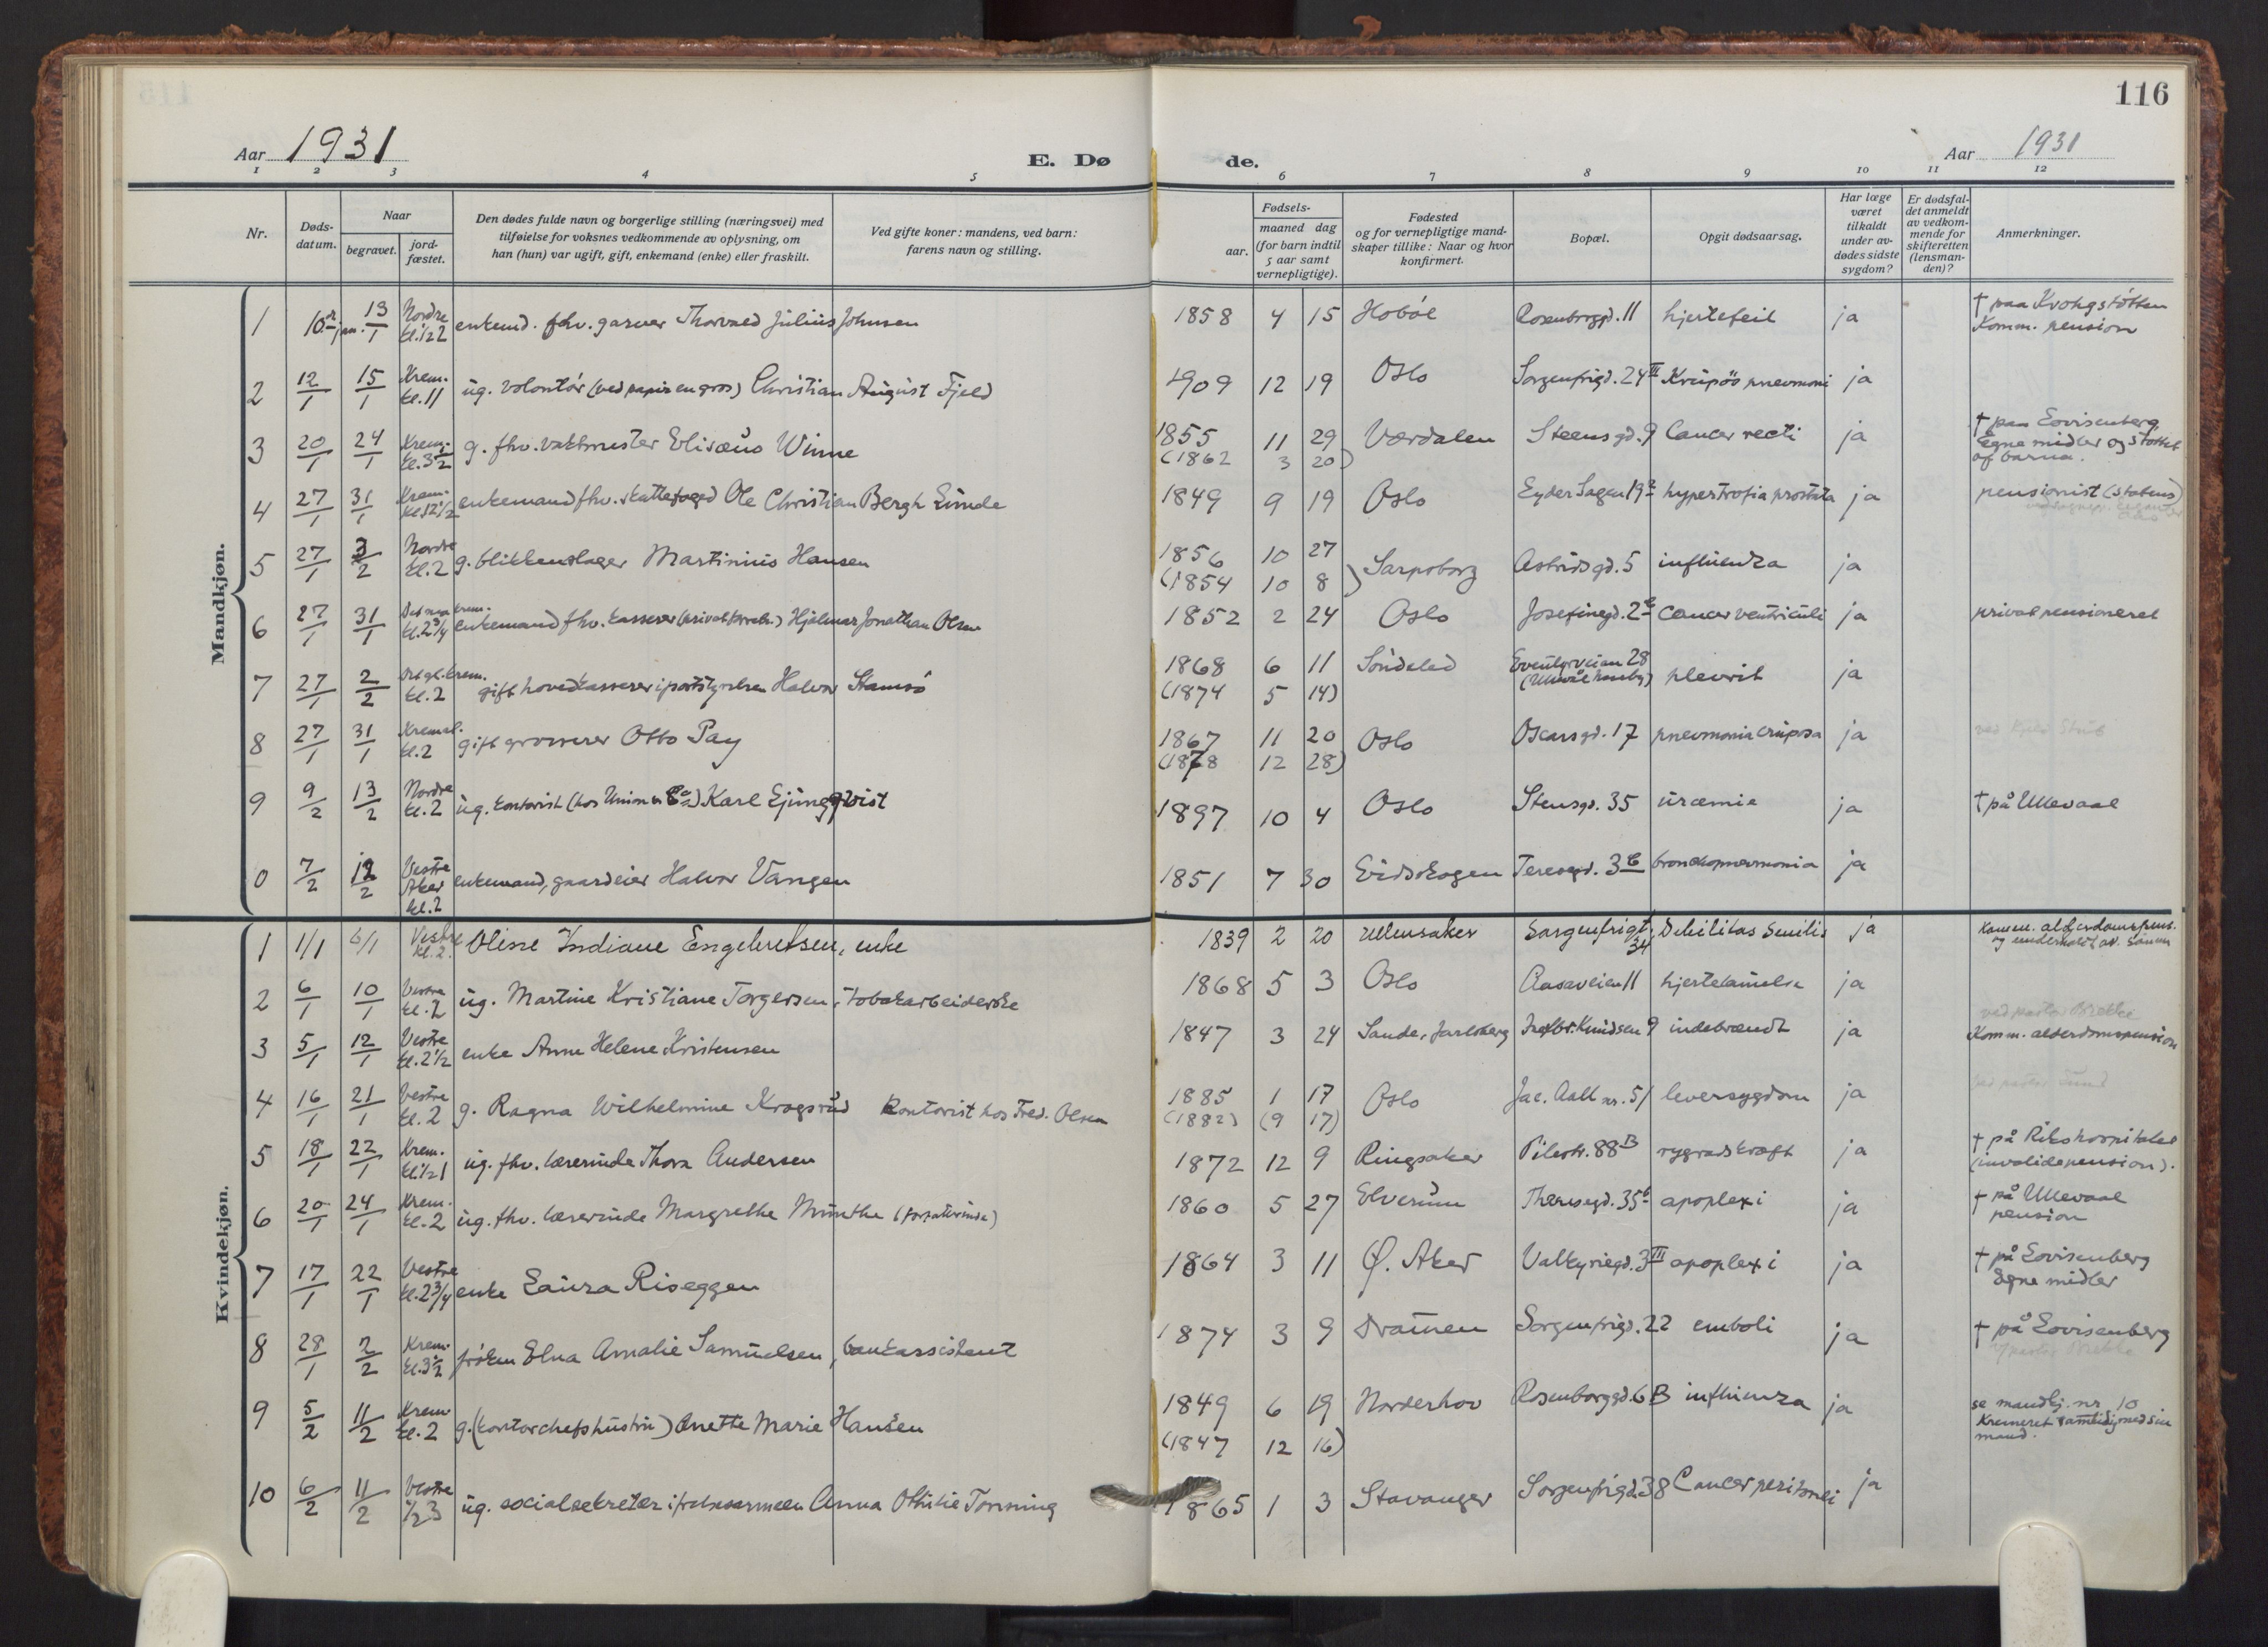 116
Aar 1931
E. Dø
de.
Aar 1931
1 2 3 4 5 6 7 8 9 10 11 12
Nr.
Døds-
datum.
Naar
begravet.
jord-
fæstet.
Den dødes fulde navn og borgerlige stilling (næringsvei) med
tilføielse for voksnes vedkommende av oplysning, om
han (hun) var ugift, gift, enkemand (enke) eller fraskilt.
Ved gifte koner: mandens, ved barn:
farens navn og stilling.
Fødsels-
aar.
maaned dag
(for barn indtil
5 aar samt
vernepligtige).
Fødested
og for vernepligtige mand-
skaper tillike: Naar og hvor
konfirmert.
Bopæl.
Opgit dødsaarsag.
Har læge
været
tilkaldt
under av-
dødes sidste
sygdom?
Er dødsfal-
det anmeldt
av vedkom-
mende for
skifteretten
(lensman-
den)?
Anmerkninger.
Mandkjøn.
1 10 jan. 13/1 Nordre kl. 1/2 2 enkemd. fhv. garver Thorvald Julius Johnsen 1858 4 15 Hobøl Rosenborggd. 11 hjertefeil ja † paa Krohgstøtten
Komm. pension
2 12/1 15/1 Krem. kl. 11 ug. volontør (ved papir en gros) Christian August Fjeld 1909 12 19 Oslo Sorgenfrigd. 24 II Krupøs pneumoni ja
3 20/1 24/1 Krem. kl. 3 1/2 g. fhv. vaktmester Elisæus Winne 1855 11 29 Værdalen Steensgd. 9 Cancer recti ja † paa Lovisenberg
(1862 3 20) Egne midler og støttet
af barna.
4 27/1 31/1 Krem. kl. 12 1/2 enkemand fhv. skattefoged Ole Christian Bergh Lunde 1849 9 19 Oslo Eyder Sagen 19 hypertrofia prostata ja pensionist (statens)
5 27/1 3/2 Nordre kl. 2 g. blikkenslager Martinius Hansen 1856 10 27 Sarpsborg Astridsgd. 5 influenza ja
(1854 10 8)
6 27/1 31/1 Det nye krem. kl. 2 3/4 enkemand fhv. kasserer Hjalmar Jonathan Olsen 1852 2 24 Oslo Josefinegd. 2 cancer ventriculi ja privat pensioneret
7 27/1 2/2 Det gl. krem. kl. 2 gift hovedkasserer i poststyrelsen Halvor Stamsø 1868 6 11 Søndeled Eventyrveien 28 plevrit ja
(1874 5 14) (Ullevål haveby)
8 27/1 31/1 Kremat. kl. 2 gift grosserer Otto Pay 1867 11 20 Oslo Oscarsgd. 17 pneumonia cruposa ja
(1878 12 28)
9 9/2 13/2 Nordre kl. 2 ug. kontorist (hos Union Co) Karl Ljungqvist 1897 10 4 Oslo Stensgd. 35 uræmie ja † på Ullevaal
0 7/2 12/2 Vestre Aker kl. 2 enkemand, gaardeier Halvor Vangen 1851 7 30 Eidskogen Teresegd. 3 bronchopneumonia ja
Kvindekjøn.
1 1/1 6/1 Vestre kl. 2. Oline Indiane Engebretsen, enke 1839 2 20 Ullensaker Sorgenfrigt. 34 Debilitas senilis ja Komm. alderdomspens.
og underholdt av sønnen
2 6/1 10/1 Vestre kl. 2 ug. Martine Kristiane Torgersen, tobakarbeiderske 1868 5 3 Oslo Aasaveien 11 hjertelamelse ja
3 5/1 12/1 Vestre kl. 2 1/2 enke Anne Helene Kristensen 1847 3 24 Sande, Jarlsberg Ingbr. Knudsen 9 indebrændt ja Komm. alderdomspension
4 16/1 21/1 Vestre kl. 2 g. Ragna Wilhelmine Krogsrud kontorist hos Fred. Olsen 1885 1 17 Oslo Jac. Aall nr. 51 leversygdom ja
(1882) (9 17)
5 18/1 22/1 Krem. kl. 1/2 1 ug. fhv. lærerinde Thora Andersen 1872 12 9 Ringsaker Pilestr. 88 B rygradskræft ja † på Rikshospitalet
(invalidepension).
6 20/1 24/1 Krem. kl. 2 ug. fhv. lærerinde Margrethe Munthe (forfatterinde) 1860 5 27 Elverum Theresegd. 35 apoplexi ja † på Ullevaal
pension
7 17/1 22/1 Vestre kl. 2 3/4 enke Laura Riseggen 1864 3 11 Ø. Aker Valkyriegd. 3 III apoplexi ja † på Lovisenberg
Egne midler
8 28/1 2/2 Krem. kl. 3 1/2 frøken Elna Amalie Samuelsen, bankassistent 1874 3 9 Dramen Sorgenfrigd. 22 emboli ja † på Lovisenberg
9 5/2 11/2 Krem kl. 2 g. (kontorchefs hustru) Anette Marie Hansen 1849 6 19 Norderhov Rosenborggd. 6 B influenza ja se mandkj. nr. 10
(1847 12 16) Kremeret samtidig med sin
mand.
10 6/2 11/2 Vestre 1/2 3 ug. socialsekretær i frelsesarmeen Anna Othilie Tonning 1865 1 3 Stavanger Sorgenfrigd. 38 Cancer peritonei ja